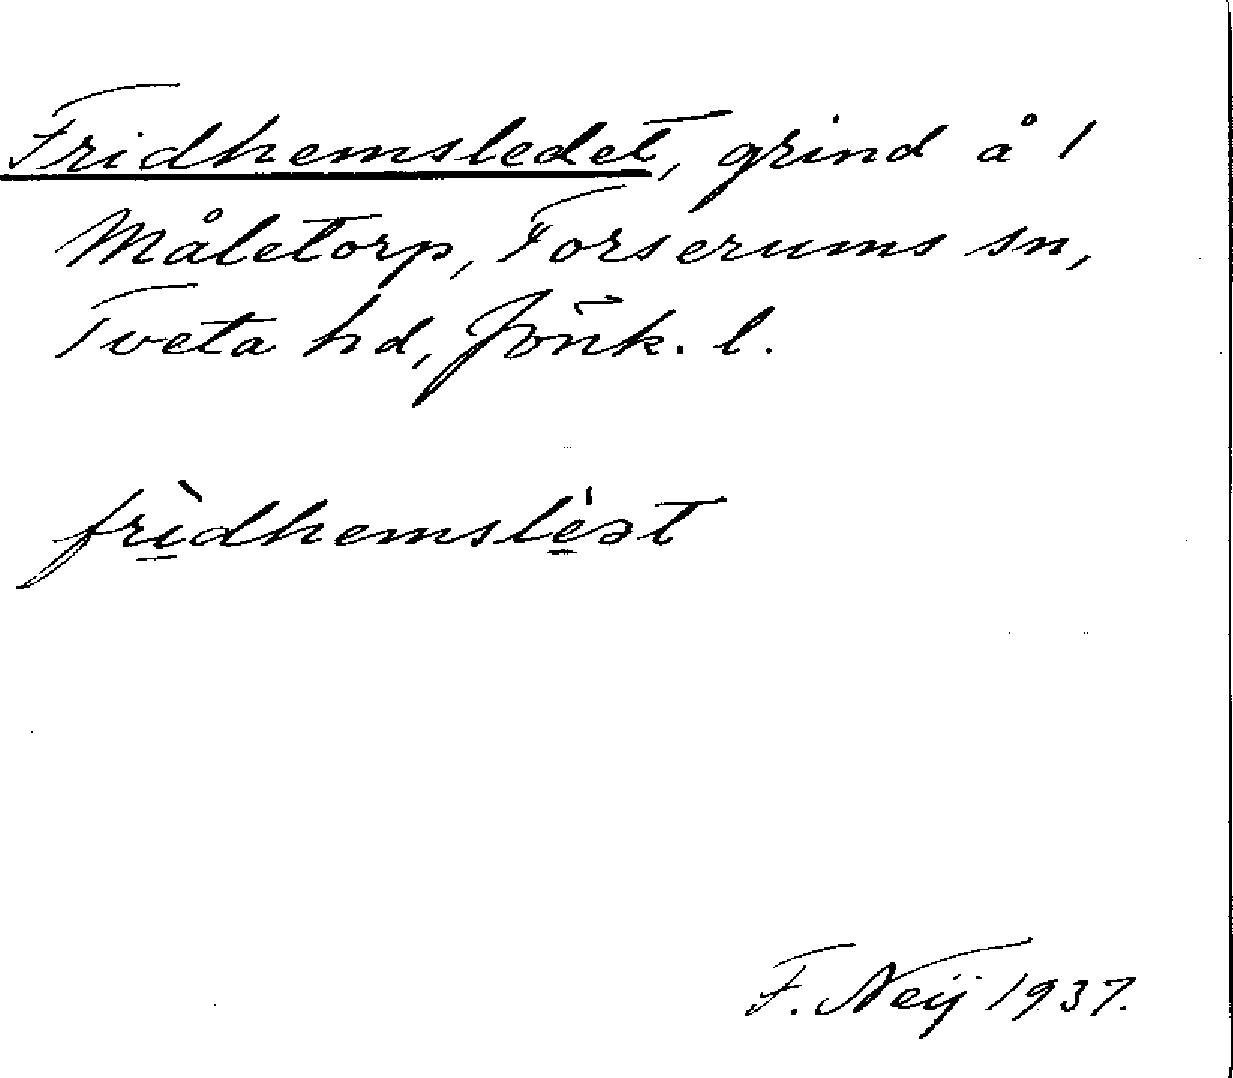 Fridhemsledet, grind å 1
Måletorp, Forserums sn,
Tveta hd, Jönk. l.
frì̲dhemsle̲̍ət
F. Neij 1937.